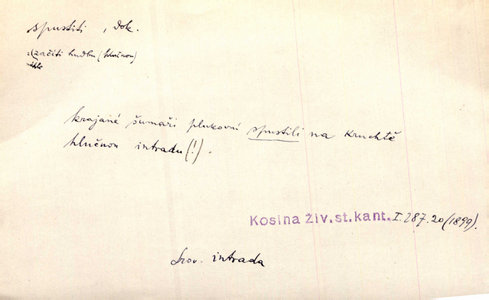 spustiti, dok.
začíti hudbu (hlučnou)
krajané šumaři plukovní spustili na kruchtě
hlučnou intradu (!).
Kosina živ. st. kant. I. 287. 20 (1899).
Srov. intrada